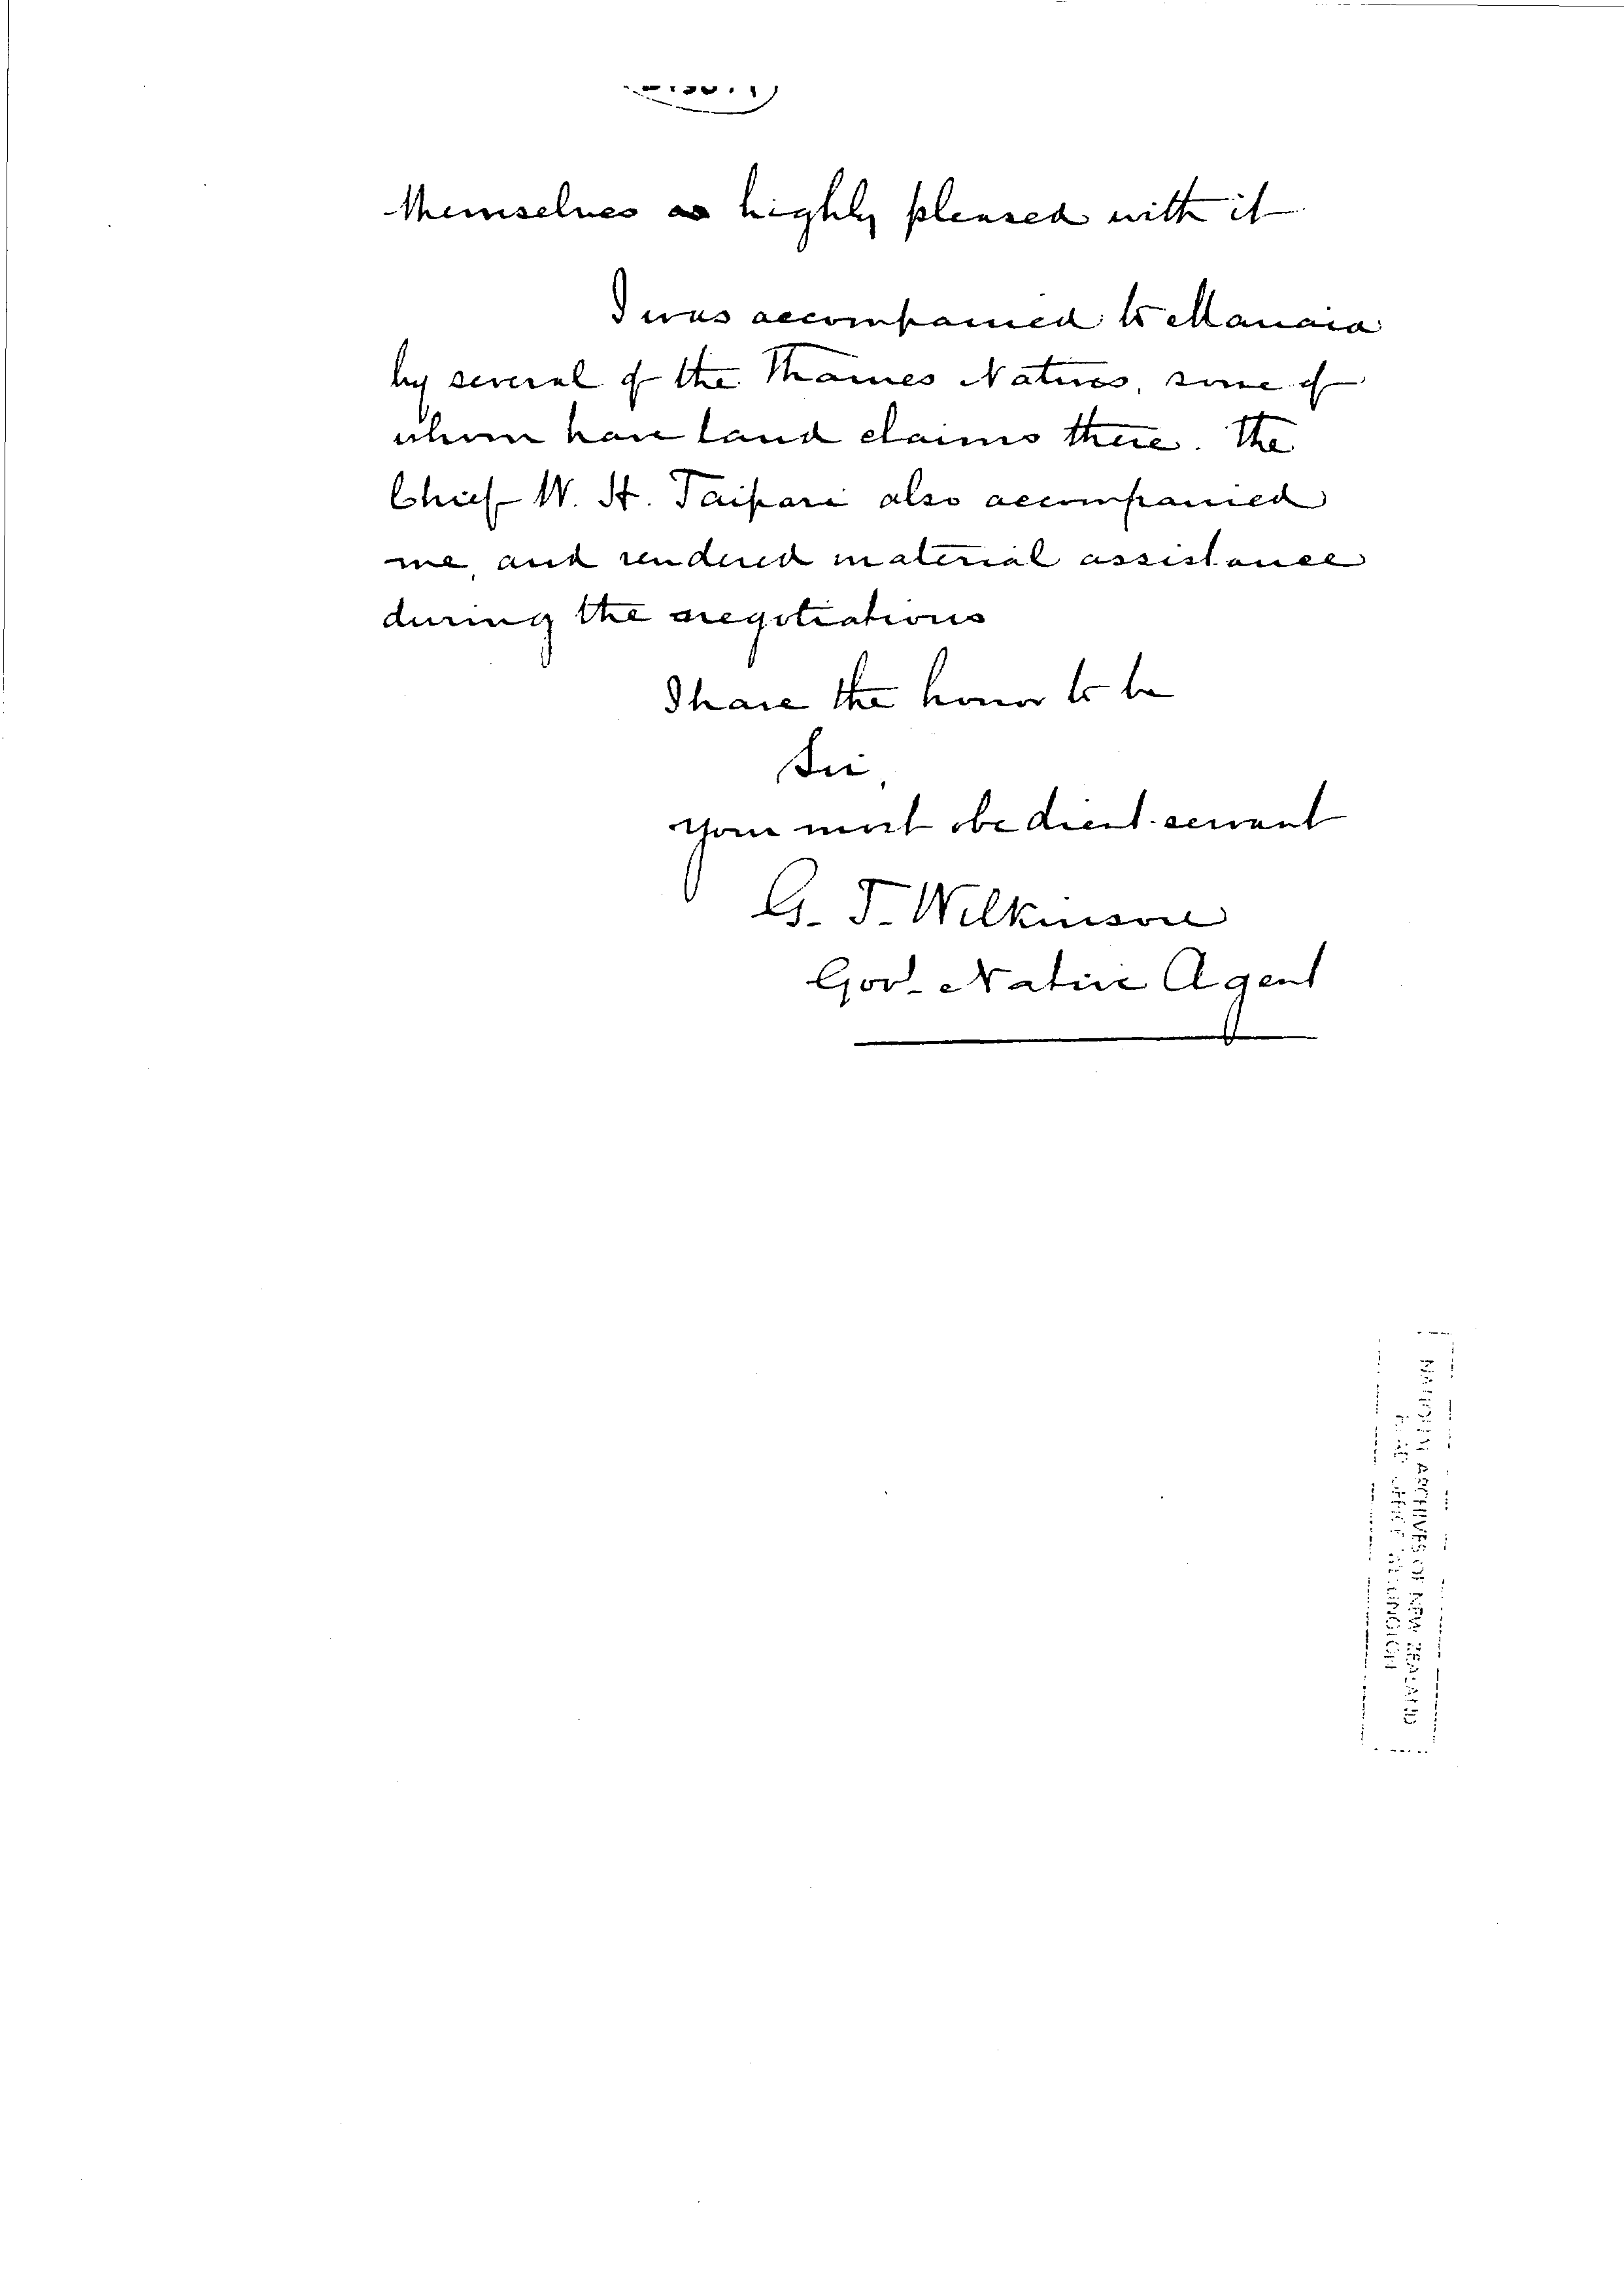 themselves as highly pleased with it
I was accompanied to Manaia
by several of the Thames Natives, some of
whom have land claims there. The
Chief W. H. Taipari also accompanied
me, and rendered material assistance
during the negotiations
I have the honor to be
Sir,
your most obedient servant
G. T. Wilkinson
Govt. Native Agent
ARCHIVES OF NEW ZEALAND